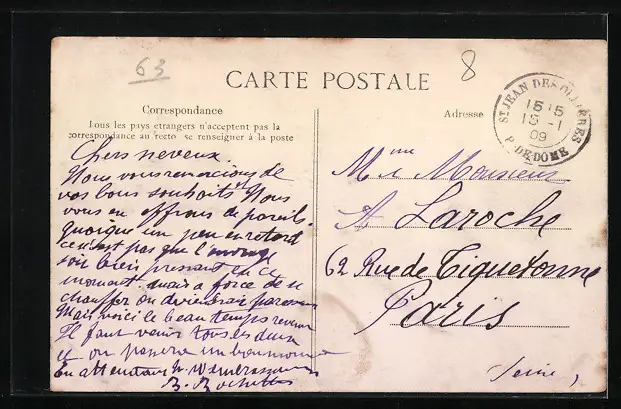 63
8
CARTE POSTALE
Correspondance
Tous les pays etrangers n'acceptent pas la
correspondance au recto se renseigner à la poste
Adresse
ST JEAN DES OLLIÈRES
15 15
15 - 1
09
P. DE DOME
Chers neveux
Nous vous remercions de
vos bons souhaits Nous
vous en offrons de pareils.
quoique un peu en retard
ce n'est pas que l'ouvrage
soit bien pressant en ce
moment mais a force de se
chauffer on deviendrait
Mais voici le beau temps revenu
Il faut venir tous les deux
et on passera un bon moment
En attendant
Mme Monsieur
A Laroche
62 Rue de Tiquetonne
Paris
Seine,